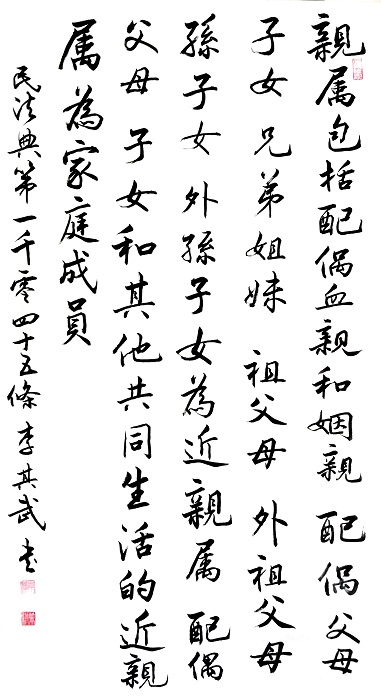 親属包括配偶血親和姻親 配偶 父母
子女 兄弟姐妹 祖父母 外祖父母
孫子女 外孫子女為近親属 配偶
父母 子女和其他共同生活的近親
属為家庭成員
民法典第一千零四十五條 李其武 书